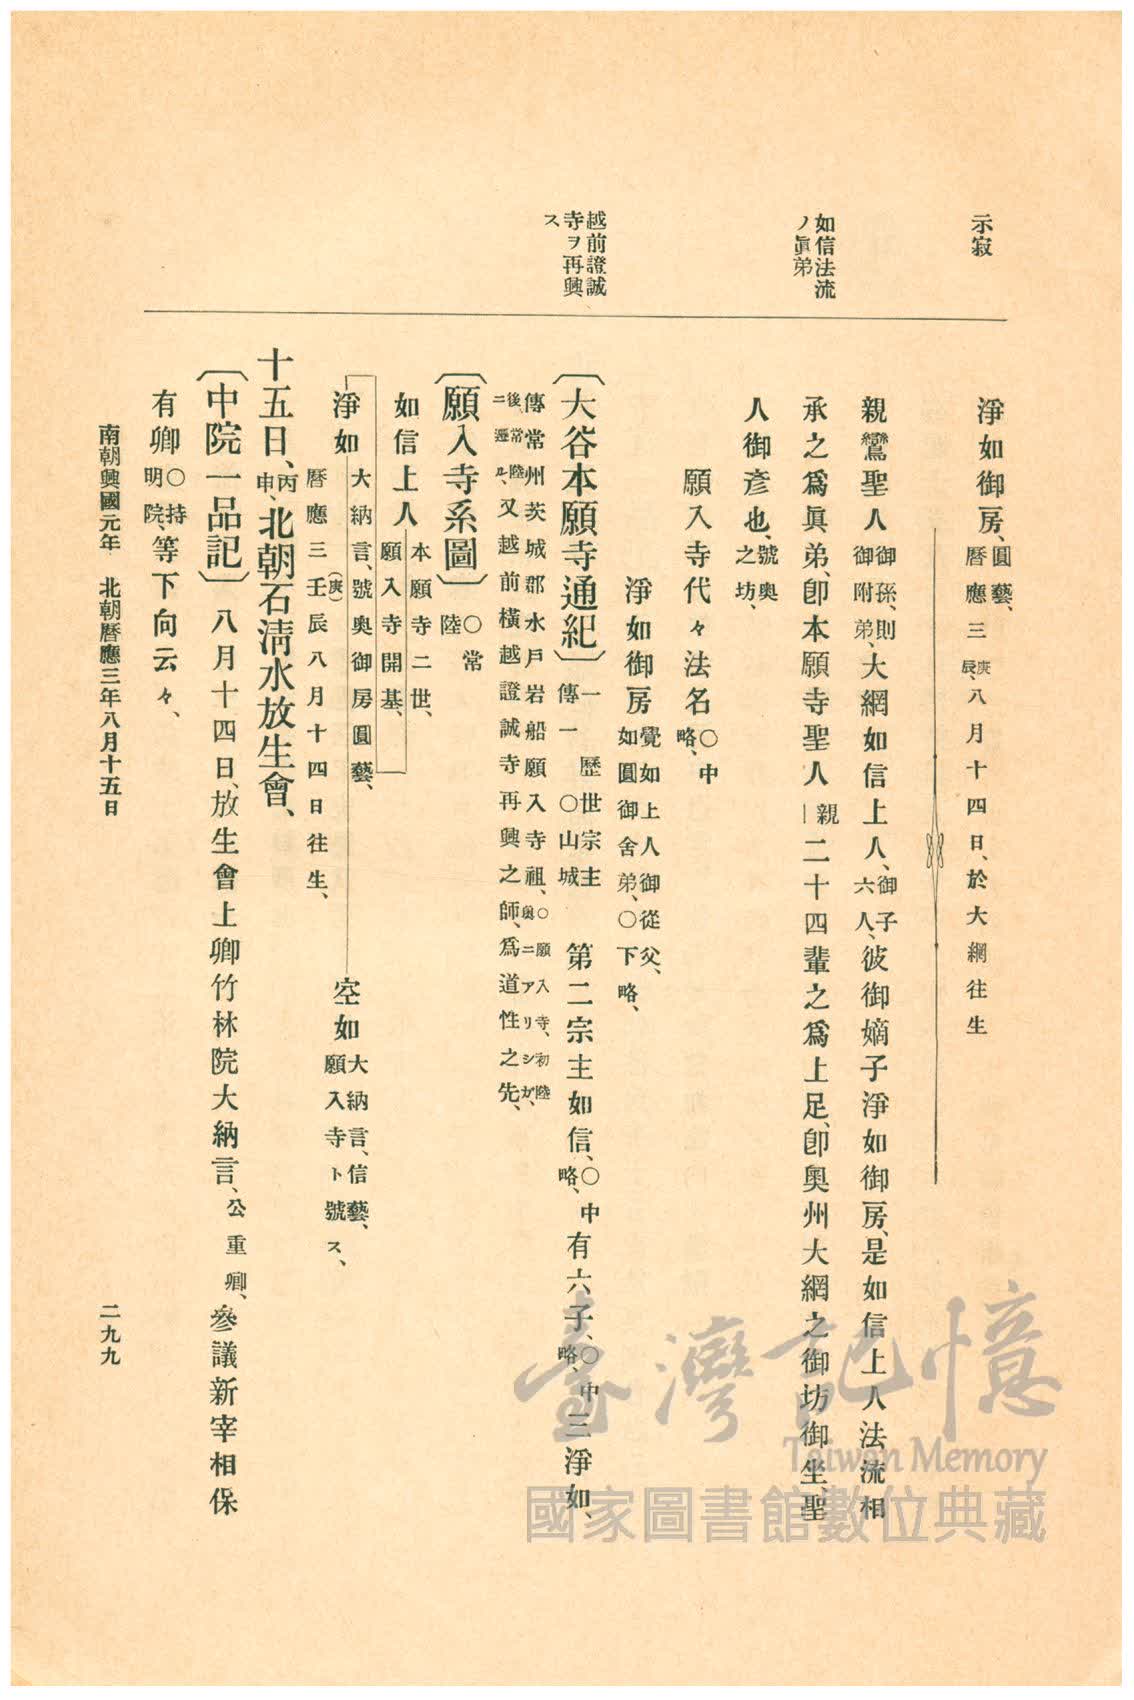 示寂
如信法流
ノ眞弟
越前證誠
寺ヲ再興
ス
淨如御房、圓藝、曆應三庚辰、八月十四日、於大網往生
親鸞聖人御孫、則御附弟、大網如信上人、御子六人、彼御嫡子淨如御房、是如信上人法流相
承之爲眞弟、卽本願寺聖人親—二十四輩之爲上足、卽奧州大網之御坊御坐、聖
人御彥也、號奧之坊、
願入寺代々法名○中略、
淨如御房覺如上人御從父、如圓御舍弟、○下略、
〔大谷本願寺通紀〕一傳一 歷世宗主○山城 第二宗主如信、○中略、有六子、○中略、三淨如、
傳常州茨城郡水戶岩船願入寺祖、○願入寺、初陸奧ニアリシガ、
後、常陸ニ遷ル、又越前橫越證誠寺再興之師、爲道性之先、
〔願入寺系圖〕○常陸
如信上人本願寺二世、願入寺開基、
淨如大納言、號奧御房圓藝、曆應三壬(庚)辰八月十四日往生、
空如大納言、信藝、願入寺ト號ス、
十五日、丙申、北朝石淸水放生會、
〔中院一品記〕八月十四日、放生會上卿竹林院大納言、公重卿、參議新宰相保
有卿○持明院、等下向云々、
南朝興國元年 北朝曆應三年八月十五日
二九九
臺灣記憶
Taiwan Memory
國家圖書館數位典藏